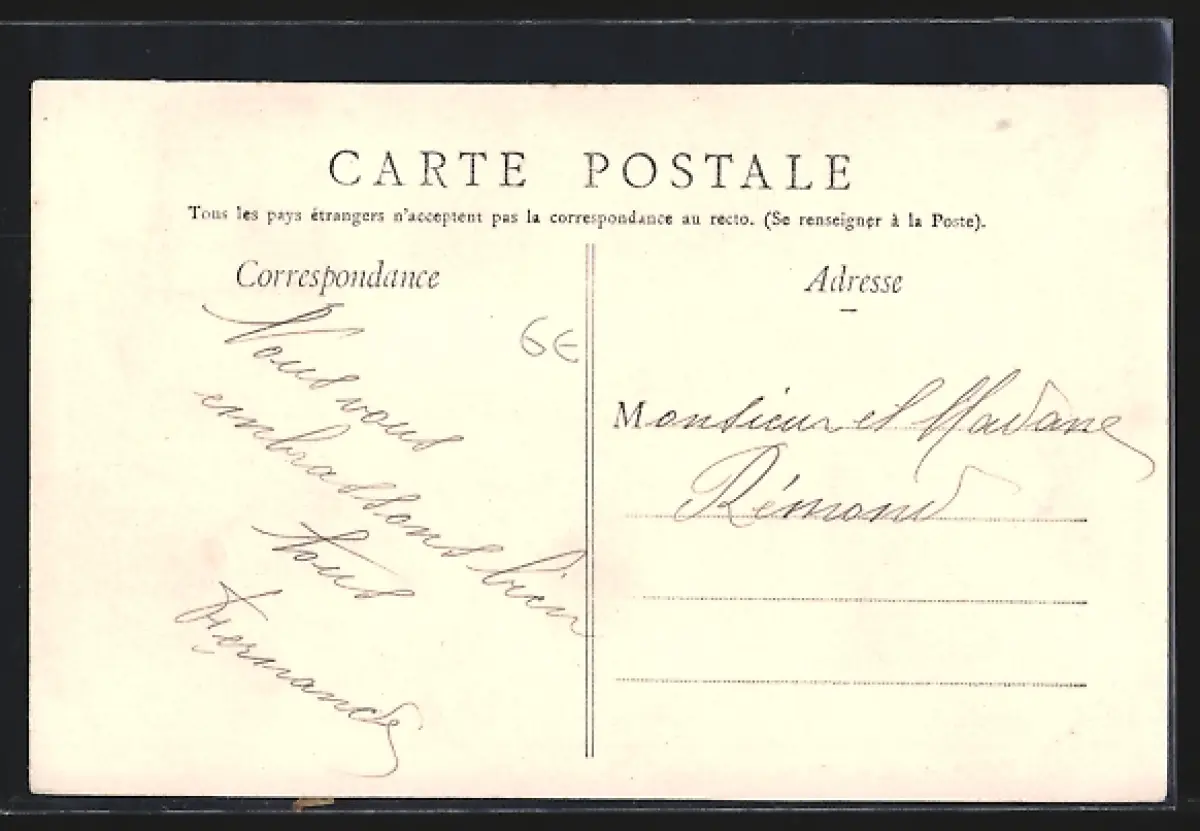 CARTE POSTALE
Tous les pays étrangers n'acceptent pas la correspondance au recto. (Se renseigner à la Poste).
Correspondance
Nous vous
embrassons bien
tous
Fernande
6€
Adresse
Monsieur et Madame
Rémond